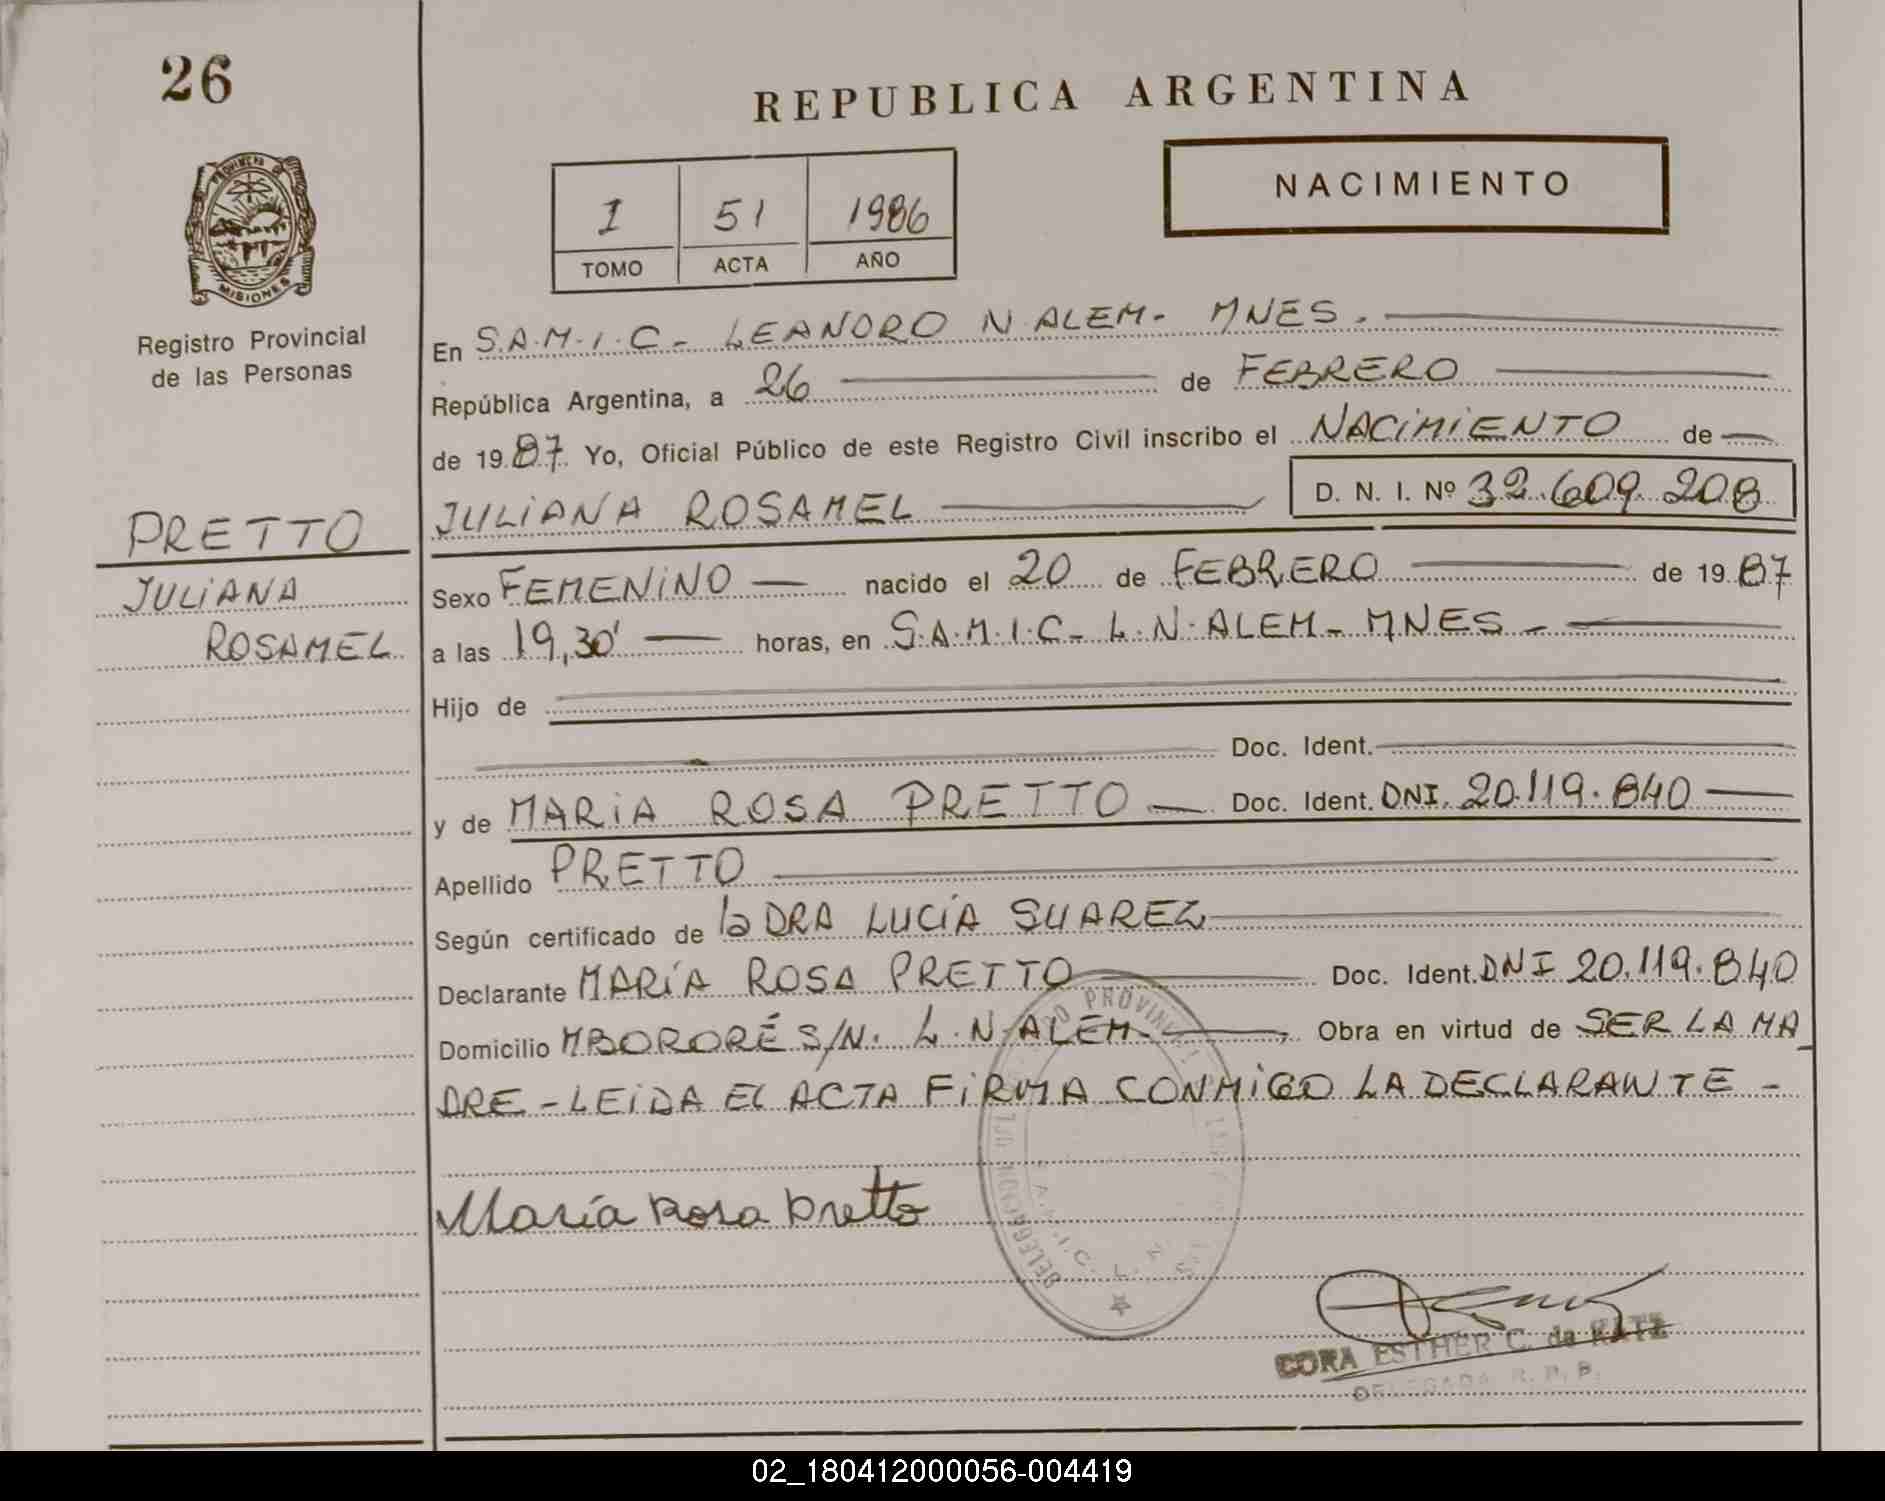 26
REPUBLICA ARGENTINA
PROVINCIA
MISIONES
Registro Provincial
de las Personas
1 51 1986
TOMO ACTA AÑO
NACIMIENTO
En S.A.M.I.C - LEANDRO N. ALEM - MNES.
República Argentina, a 26 de FEBRERO
de 1987 Yo, Oficial Público de este Registro Civil inscribo el NACIMIENTO de
JULIANA ROSAMEL D. N. I. Nº 32.609.208
PRETTO
JULIANA
ROSAMEL
Sexo FEMENINO nacido el 20 de FEBRERO de 1987
a las 19,30' horas, en S.A.M.I.C - L.N. ALEM - MNES -
Hijo de
Doc. Ident.
y de MARIA ROSA PRETTO Doc. Ident. DNI. 20.119.840
Apellido PRETTO
Según certificado de la DRA LUCÍA SUAREZ
Declarante MARÍA ROSA PRETTO Doc. Ident. DNI 20.119.840
Domicilio MBORORÉ S/N. L. N. ALEM - , Obra en virtud de SER LA MA
DRE - LEIDA EL ACTA FIRMA CONMIGO LA DECLARANTE -
María Rosa Pretto
CORA ESTHER C. de KATZ
DELEGADA R. P. P.
02_180412000056-004419